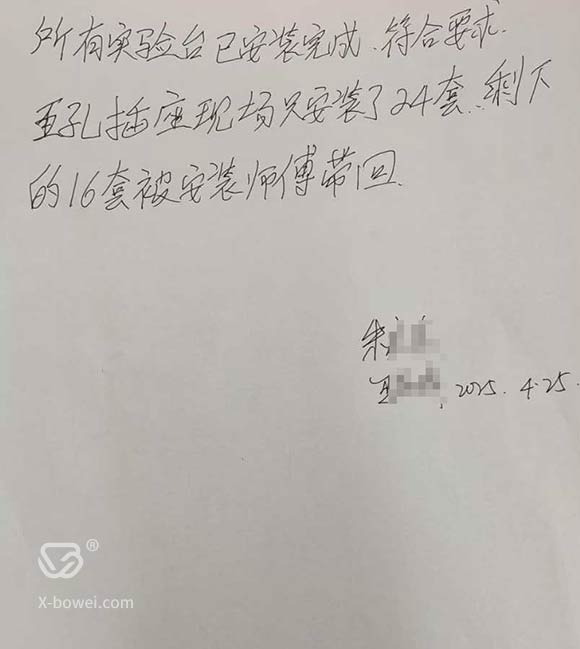 所有实验台已安装完成、符合要求.
五孔插座现场只安装了24套.剩下
的16套被安装师傅带回.
朱
王
2025.4.25.
®
X-bowei.com